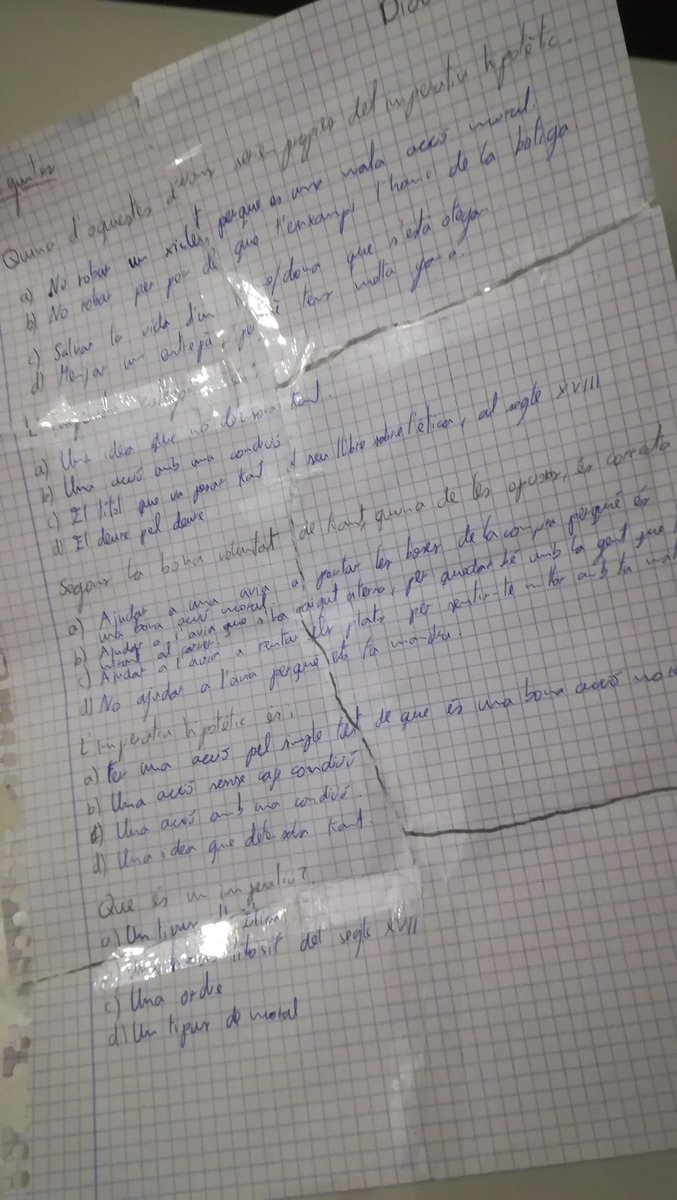 Quina d'aquestes accions serien pròpies del imperatiu hipotètic.
a) No robar un xiclet, perque es una mala acció moral.
b) No robar per por de que t'enxampi l'home de la botiga.
c) Salvar la vida d'un home/dona que s'està ofegan
d) Menjar un entrepà, perquè tens molta gana.
L'imperatiu
a) Una idea que no defensava Kant.
b) Una acció amb una condició
c) El títol que va posar Kant al seu llibre sobre l'ètica, al segle XVIII
d) El deure pel deure
Segons la bona voluntat de Kant, quina de les opcions, es correcta
a) Ajudar a una avia a portar les bosses de la compra perquè és
una bona acció moral
b) Ajudar a l'avia que s'ha caigut a terra, per quedar bé amb la gent que
al carrer.
c) Ajudar a l'avia a rentar els plats per sentir-te millor amb tu mat
d) No ajudar a l'avia perquè et fa mandra.
L'imperatiu hipotètic es:
a) Fer una acció pel simple fet de que és una bona acció mora
b) Una acció sense cap condició
c) Una acció amb una condició.
d) Una idea que defensda Kant.
Que és un imperatiu?
a) Un tipus d'ètica
filòsit del segle XVII
c) Una ordre
d) Un tipus de moral